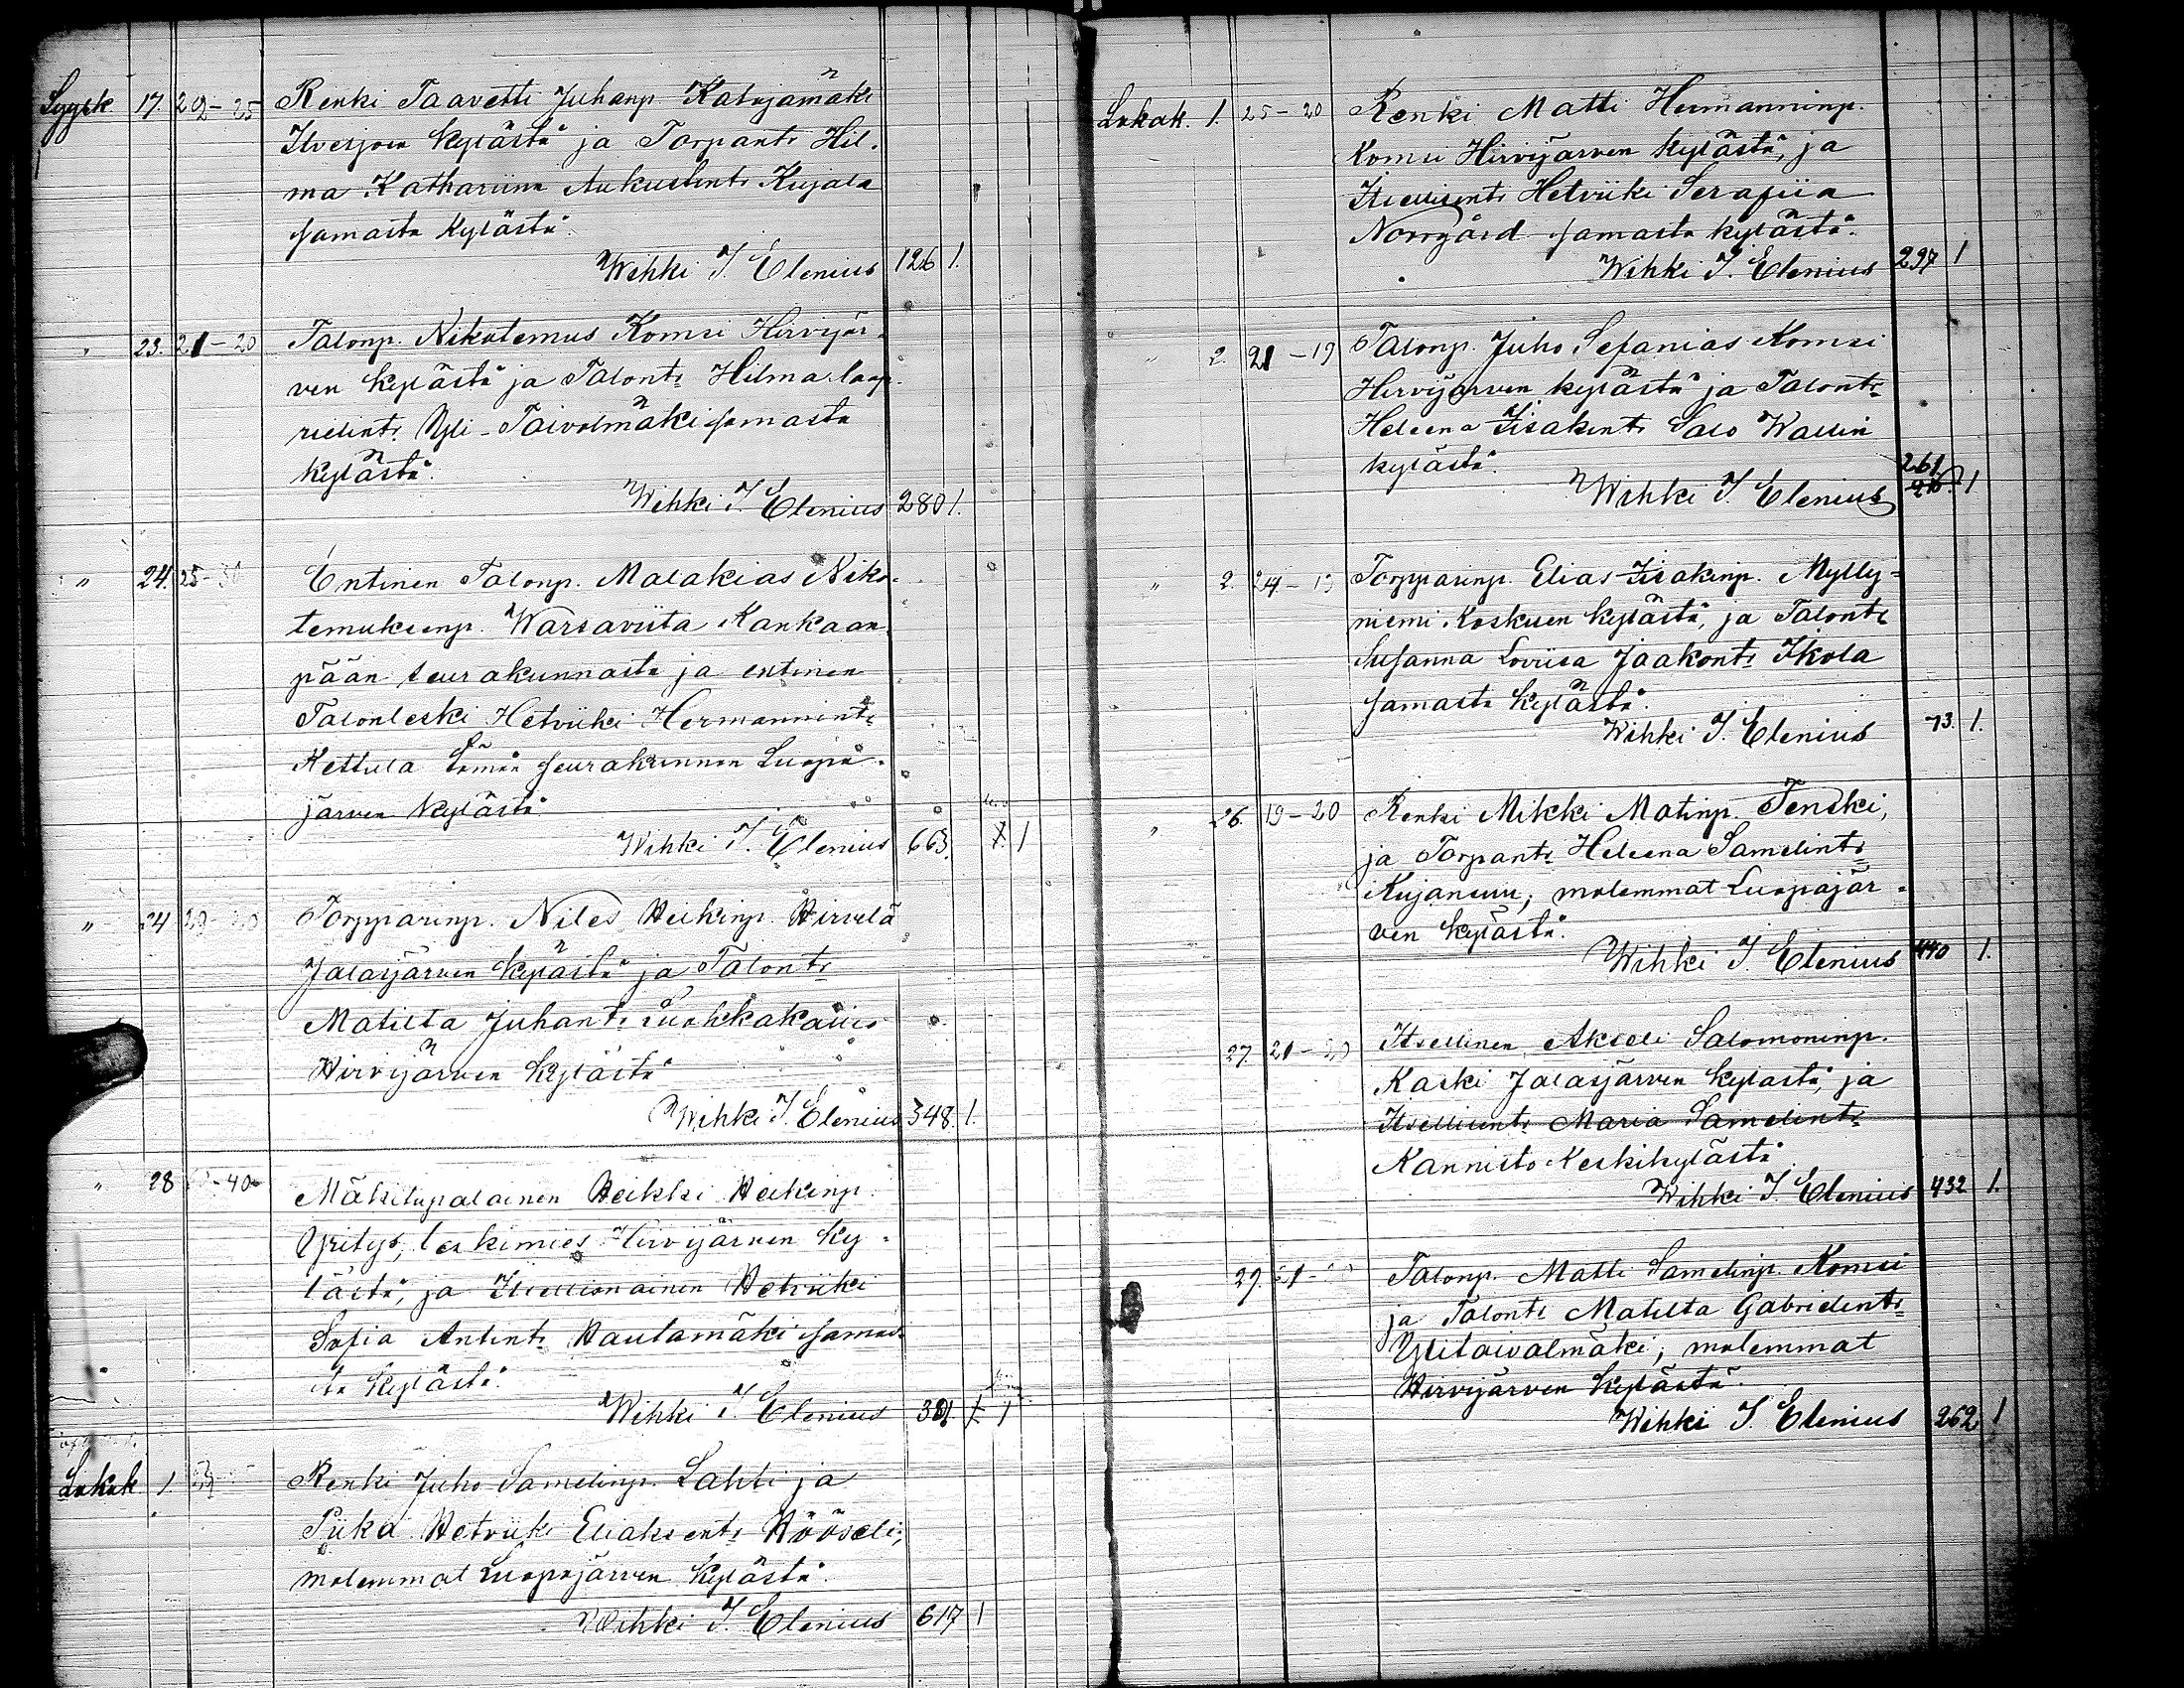 Syysk 17. 29-25 Renki Taavetti Juhanp. Katajamäki
Ilvesjoen kylästä ja Torpant. Hil-
ma Kathariina Aukustint. Kujala
samasta kylästä.
Wihki I. Elenius 126 1.
23. 21-20 Talonp. Nikotemus Komsi Hirvijär-
ven kylästä ja Talont. Hilma Kaap-
rielint. Yli-Taivalmäki samasta
kylästä.
Wihki I. Elenius 280 1.
" 24. 25-30 Entinen Talonp. Malakias Niko-
temuksenp. Warsaviita Kankaan-
pään seurakunnasta ja entinen
Talonleski Hetviiki Hermannint.
Kettula tämän seurakunnan Luopa-
järven kylästä.
Wihki I. Elenius 663. 1
" 24 29-20 Torpparinp. Niles Heikinp. Hirvelä
Jalasjärven kylästä ja Talont.
Matilta Juhant.
Hirvijärven kylästä
Wihki I. Elenius 348. 1.
" 28 -40 Mäkitupalainen Heikki Heikinp.
Yritys, leskimies Hirvijärven ky-
lästä, ja Itsellisnainen Hetviiki
Sofia Antint. Hautamäki samas-
ta kylästä.
Wihki I. Elenius 1
Lokak 1. Renki Juho Samelinp. Lahti ja
Piika Hetviiki Eliaksent. Hööseli,
molemmat Luopajärven kylästä.
Wihki I. Elenius 617 1
Lokak. 1. 25-20 Renki Matti Hermanninp.
Komsi Hirvijärven kylästä, ja
Itsellisent. Hetviiki Serafiia
Norrgård samasta kylästä.
Wihki I. Elenius 297 1
" 2. 21-19 Talonp. Juho Sefanias Komsi
Hirvijärven kylästä ja Talont.
Heleena Iisakint. Salo Wallin
kylästä.
Wihki I. Elenius 261. 1
" 2. 24-19 Torpparinp. Elias Iisakinp. Mylly-
niemi Koskuen kylästä, ja Talont.
Susanna Loviisa Jaakont. Ikola
samasta kylästä.
Wihki I. Elenius 73. 1.
" 26. 19-20 Renki Mikki Matinp. Tenski,
ja Torpant. Heleena Samelint.
Kujansuu, molemmat Luopajär-
ven kylästä.
Wihki I. Elenius 440 1.
27. 21-20 Itsellinen Akseli Salomoninp.
Kaski Jalasjärven kylästä, ja
Itsellisent. Maria Samelint.
Kannisto Keskikylästä
Wihki I. Elenius 432 1.
29. 21- Talonp. Matti Samelinp. Komsi
ja Talont. Matilta Gabrielint.
Ylitaivalmäki, molemmat
Hirvijärven kylästä.
Wihki I. Elenius 262 1